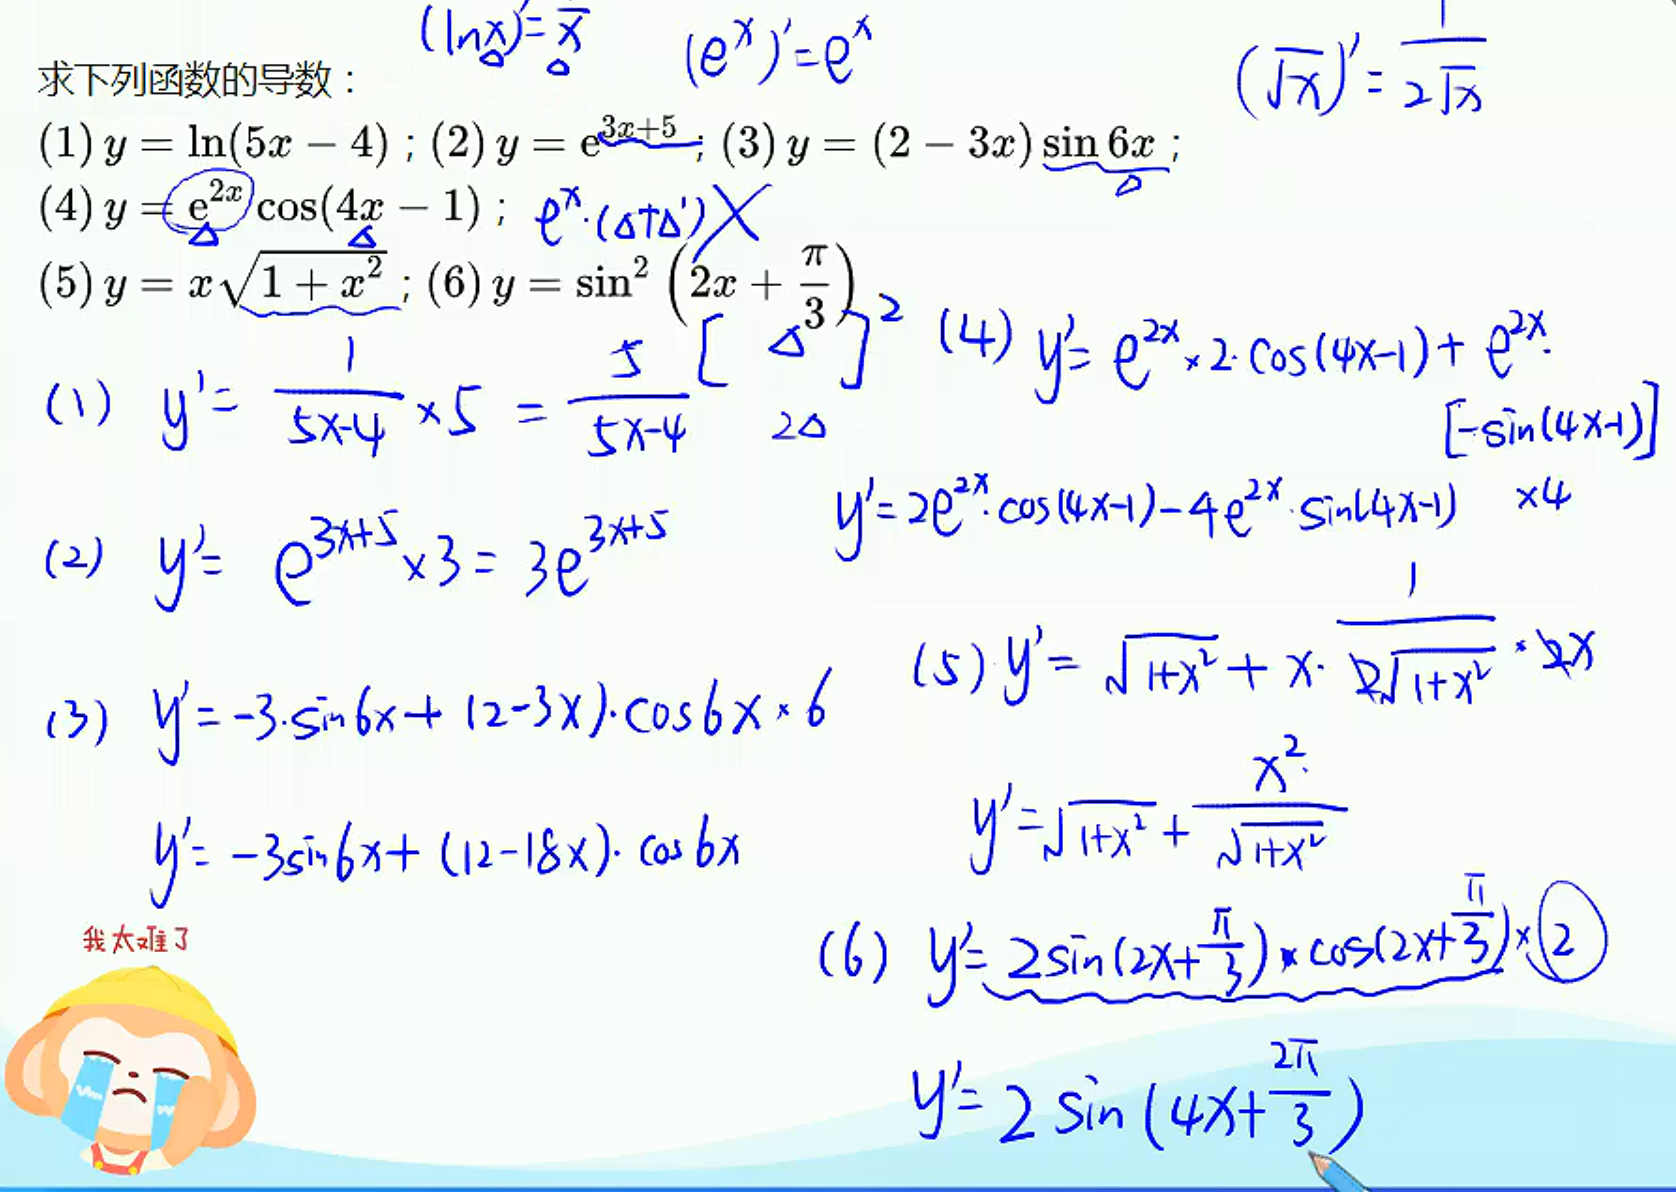 (lnx)'=1/x (e^x)'=e^x (√x)'=1/(2√x)
求下列函数的导数：
(1) y = ln(5x − 4) ; (2) y = e^{3x+5} ; (3) y = (2 − 3x) sin 6x ;
Δ
(4) y = e^{2x} cos(4x − 1) ; e^x·(Δ+Δ') X
Δ Δ
(5) y = x√(1 + x²) ; (6) y = sin² (2x + π/3) .
[ Δ ]²
2Δ
(1) y'= 1/(5x-4) ×5 = 5/(5x-4)
(2) y'= e^{3x+5} ×3 = 3e^{3x+5}
(3) y'= -3·sin6x + (2-3x)·cos6x × 6
y'= -3sin6x + (12-18x)· cos6x
(4) y'= e^{2x} ×2·cos(4x-1) + e^{2x}·
[-sin(4x-1)]
×4
y'= 2e^{2x}·cos(4x-1) - 4e^{2x}·sin(4x-1)
(5) y'= √(1+x²) + x· 1/(2√(1+x²)) · 2x
y'= √(1+x²) + x²/√(1+x²)
(6) y'= 2sin(2x+π/3) × cos(2x+π/3) × 2
y'= 2 sin (4x+2π/3)
我太难了